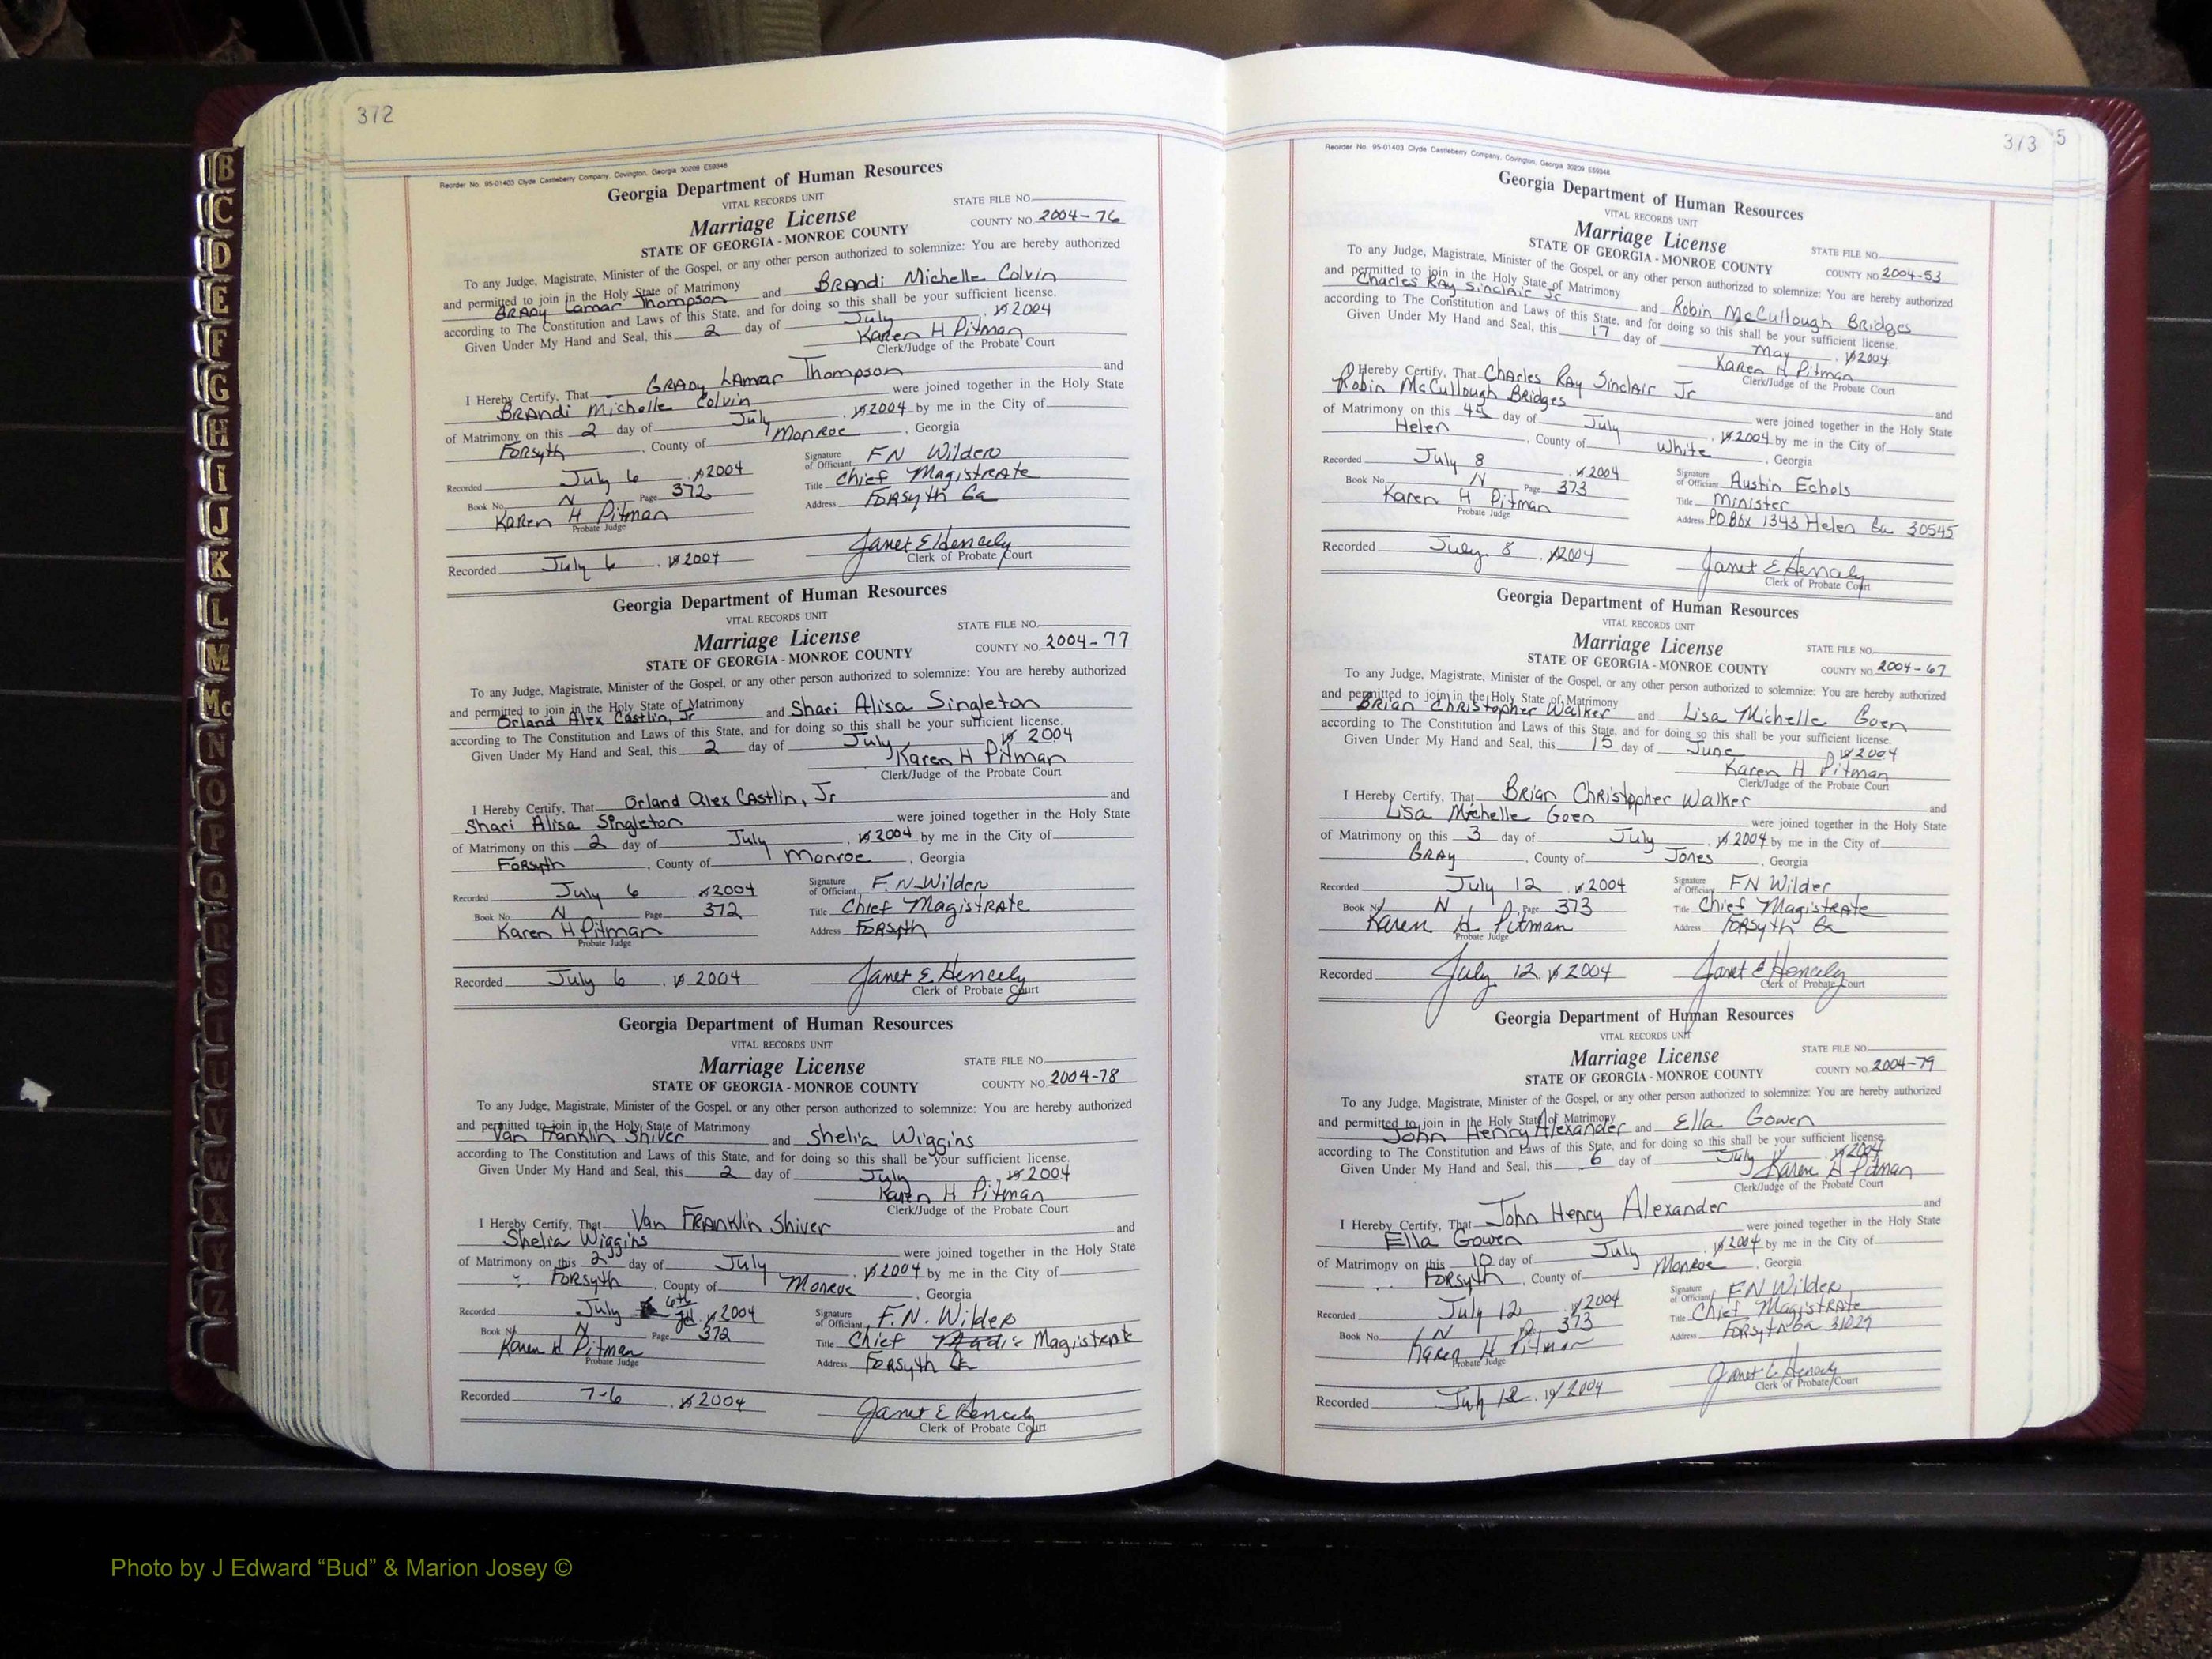 372
Reorder No. 95-01403 Clyde Castleberry Company, Covington, Georgia 30209 E59348
Georgia Department of Human Resources
VITAL RECORDS UNIT
STATE FILE NO.
Marriage License
COUNTY NO. 2004-76
STATE OF GEORGIA - MONROE COUNTY
To any Judge, Magistrate, Minister of the Gospel, or any other person authorized to solemnize: You are hereby authorized
and permitted to join in the Holy State of Matrimony
Lamar Thompson and BRAndi Michelle Colvin
according to The Constitution and Laws of this State, and for doing so this shall be your sufficient license.
Given Under My Hand and Seal, this 2 day of July , 19 2004
Karen H Pitman
Clerk/Judge of the Probate Court
I Hereby Certify, That GRAdy LAmar Thompson and
BRAndi Michelle Colvin were joined together in the Holy State
of Matrimony on this 2 day of July , 19 2004 by me in the City of
Forsyth , County of Monroe , Georgia
Recorded July 6 , 19 2004
Signature of Officiant FN Wilder
Book No. N Page 372
Title Chief Magistrate
Karen H Pitman
Address Forsyth Ga
Probate Judge
Recorded July 6 , 19 2004
Janet E Hencely
Clerk of Probate Court
Georgia Department of Human Resources
VITAL RECORDS UNIT
STATE FILE NO.
Marriage License
COUNTY NO. 2004-77
STATE OF GEORGIA - MONROE COUNTY
To any Judge, Magistrate, Minister of the Gospel, or any other person authorized to solemnize: You are hereby authorized
and permitted to join in the Holy State of Matrimony
Orland Alex Castlin, Jr and Shari Alisa Singleton
according to The Constitution and Laws of this State, and for doing so this shall be your sufficient license.
Given Under My Hand and Seal, this 2 day of July 19 2004
Karen H Pitman
Clerk/Judge of the Probate Court
I Hereby Certify, That Orland Alex Castlin, Jr and
Shari Alisa Singleton were joined together in the Holy State
of Matrimony on this 2 day of July , 19 2004 by me in the City of
Forsyth , County of Monroe , Georgia
Recorded July 6 , 19 2004
Signature of Officiant F. N. Wilder
Book No. N Page 372
Title Chief Magistrate
Karen H Pitman
Address Forsyth
Probate Judge
Recorded July 6 , 19 2004
Janet E. Hencely
Clerk of Probate Court
Georgia Department of Human Resources
VITAL RECORDS UNIT
STATE FILE NO.
Marriage License
COUNTY NO. 2004-78
STATE OF GEORGIA - MONROE COUNTY
To any Judge, Magistrate, Minister of the Gospel, or any other person authorized to solemnize: You are hereby authorized
and permitted to join in the Holy State of Matrimony
Van Franklin Shiver and Shelia Wiggins
according to The Constitution and Laws of this State, and for doing so this shall be your sufficient license.
Given Under My Hand and Seal, this 2 day of July , 19 2004
Karen H Pitman
Clerk/Judge of the Probate Court
I Hereby Certify, That Van FRANklin Shiver and
Shelia Wiggins were joined together in the Holy State
of Matrimony on this 2 day of July , 19 2004 by me in the City of
Forsyth , County of Monroe , Georgia
Recorded July 6th , 19 2004
Signature of Officiant F. N. Wilder
Book No. N Page 372
Title Chief Magistrate
Karen H Pitman
Address Forsyth Ga
Probate Judge
Recorded 7-6 , 19 2004
Janet E Hencely
Clerk of Probate Court
373
5
Reorder No. 95-01403 Clyde Castleberry Company, Covington, Georgia 30209 E59348
Georgia Department of Human Resources
VITAL RECORDS UNIT
Marriage License
STATE FILE NO.
STATE OF GEORGIA - MONROE COUNTY
COUNTY NO. 2004-53
To any Judge, Magistrate, Minister of the Gospel, or any other person authorized to solemnize: You are hereby authorized
and permitted to join in the Holy State of Matrimony
Charles RAy Sinclair Jr and Robin McCullough Bridges
according to The Constitution and Laws of this State, and for doing so this shall be your sufficient license.
Given Under My Hand and Seal, this 17 day of May , 19 2004
Karen H Pitman
Clerk/Judge of the Probate Court
I Hereby Certify, That Charles RAy Sinclair Jr and
Robin McCullough Bridges were joined together in the Holy State
of Matrimony on this day of July , 19 2004 by me in the City of
Helen , County of White , Georgia
Recorded July 8 , 19 2004
Signature of Officiant Austin Echols
Book No. N Page 373
Title minister
Karen H Pitman
Address PO Box 1343 Helen Ga 30545
Probate Judge
Recorded July 8 , 19 2004
Janet E Hencely
Clerk of Probate Court
Georgia Department of Human Resources
VITAL RECORDS UNIT
Marriage License
STATE FILE NO.
STATE OF GEORGIA - MONROE COUNTY
COUNTY NO. 2004-67
To any Judge, Magistrate, Minister of the Gospel, or any other person authorized to solemnize: You are hereby authorized
and permitted to join in the Holy State of Matrimony
Brian Christopher Walker and Lisa Michelle Goen
according to The Constitution and Laws of this State, and for doing so this shall be your sufficient license.
Given Under My Hand and Seal, this 15 day of June , 19 2004
Karen H Pitman
Clerk/Judge of the Probate Court
I Hereby Certify, That Brian Christopher Walker and
Lisa Michelle Goen were joined together in the Holy State
of Matrimony on this 3 day of July , 19 2004 by me in the City of
GRAy , County of Jones , Georgia
Recorded July 12 , 19 2004
Signature of Officiant FN Wilder
Book No. N Page 373
Title Chief Magistrate
Karen H Pitman
Address Forsyth Ga
Probate Judge
Recorded July 12 , 19 2004
Janet E Hencely
Clerk of Probate Court
Georgia Department of Human Resources
VITAL RECORDS UNIT
STATE FILE NO.
Marriage License
COUNTY NO. 2004-79
STATE OF GEORGIA - MONROE COUNTY
To any Judge, Magistrate, Minister of the Gospel, or any other person authorized to solemnize: You are hereby authorized
and permitted to join in the Holy State of Matrimony
John Henry Alexander and Ella Gowen
according to The Constitution and Laws of this State, and for doing so this shall be your sufficient license.
Given Under My Hand and Seal, this 6 day of July , 19 2004
Karen H Pitman
Clerk/Judge of the Probate Court
I Hereby Certify, That John Henry Alexander and
Ella Gowen were joined together in the Holy State
of Matrimony on this 10 day of July , 19 2004 by me in the City of
Forsyth , County of Monroe , Georgia
Recorded July 12 , 19 2004
Signature of Officiant FN Wilder
Book No. N Page 373
Title Chief Magistrate
Karen H Pitman
Address Forsyth Ga 31029
Probate Judge
Recorded July 12 , 19 2004
Janet E Hencely
Clerk of Probate Court
B
C
D
E
F
G
H
I
J
K
L
M
Mc
N
O
P
Q
R
S
T
U
V
W
X
Y
Z
Photo by J Edward “Bud” & Marion Josey ©